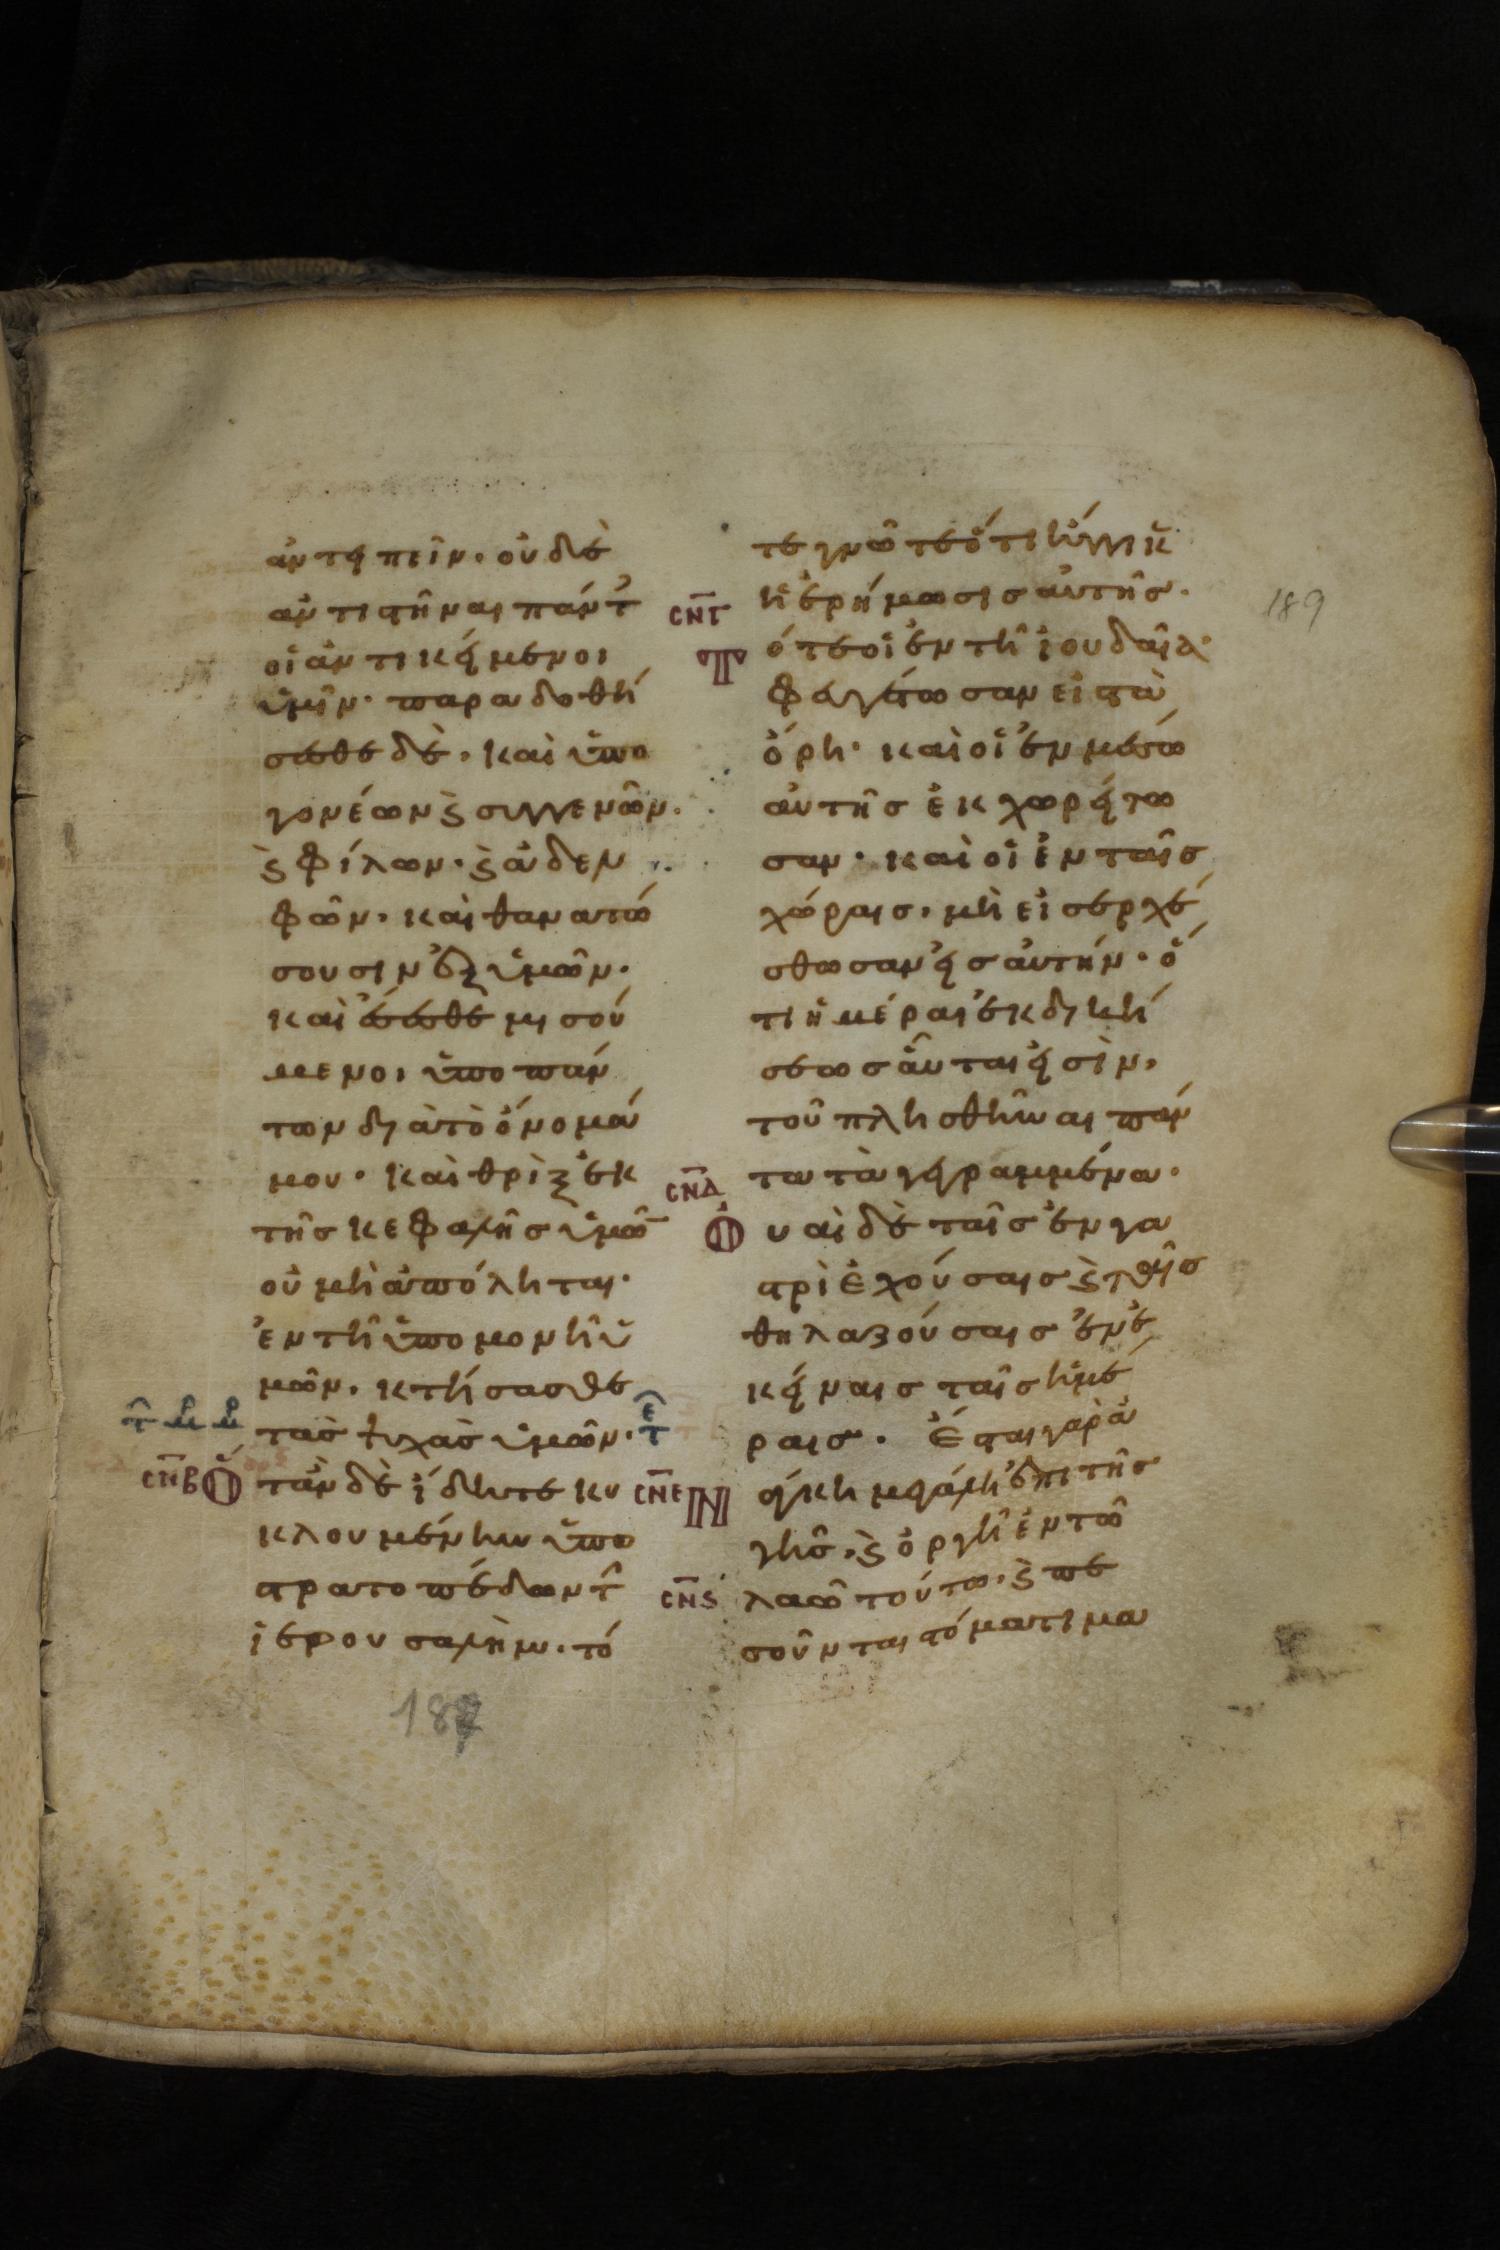 ἀντειπεῖν. οὐδὲ
ἀντιστῆναι πάντ
οἱ ἀντικείμενοι
ὑμῖν· παραδοθή
σεσθε δὲ, καὶ ὑπο
γονέων ϗ συγγενῶν.
ϗ φίλων· ϗ ἀδελ
φῶν. καὶ θανατώ
σουσιν ἐξ ὑμῶν.
καὶ ἔσεσθε μισού
μενοι ὑπο πάν
των διὰ τὸ ὄνομά
μου· καὶ θρὶξ ἐκ
τῆς κεφαλῆς ὑμῶ̄
οὐ μὴ ἀπόληται·
ἐν τῇ ὑπομονῇ ὑ
μῶν. κτήσασθε
τὰς ψυχὰς ὑμῶν·
ςν̄β Ὅ
ταν δὲ ἴδητε κυ
κλουμένην ὑπο
στρατοπέδων τ
ἱερουσαλὴμ. τό
τε γνῶτε ὅτι ἤγγικ
ςν̄γ ἡ ἐρήμωσις αὐτῆς·
Τ ότε οἱ ἐν τῇ ἰουδαίᾳ·
φευγέτωσαν εἰς τὰ
ὄρη· καὶ οἱ ἐν μέσω
αὐτῆς ἐκχωρείτω
σαν· καὶ οἱ ἐν ταῖς
χώραις, μὴ εἰσερχέ
σθωσαν εἰς αὐτήν· ὅ
τι ἡμέραι ἐκδική
σεως αὗται εἰσὶν,
τοῦ πλησθῆναι πάν
τα τὰ γεγραμμένα·
ςν̄δ
Ο ὐαὶ δὲ ταῖς ἐν γα
στρὶ ἐχούσαις ϗ τ θη
θηλαζούσαις ἐν ἐ
κείναις ταῖς ἡμέ
ραις· ἔσται γὰρ ἀ
ςν̄ε Ν
άγκη μεγάλη ἐπι τῆς
γῆς, ϗ ὀργὴ ἐν τῶ
ςν̄ς λαῶ τούτω, ϗ πε
σοῦνται στόματι μα
189
187